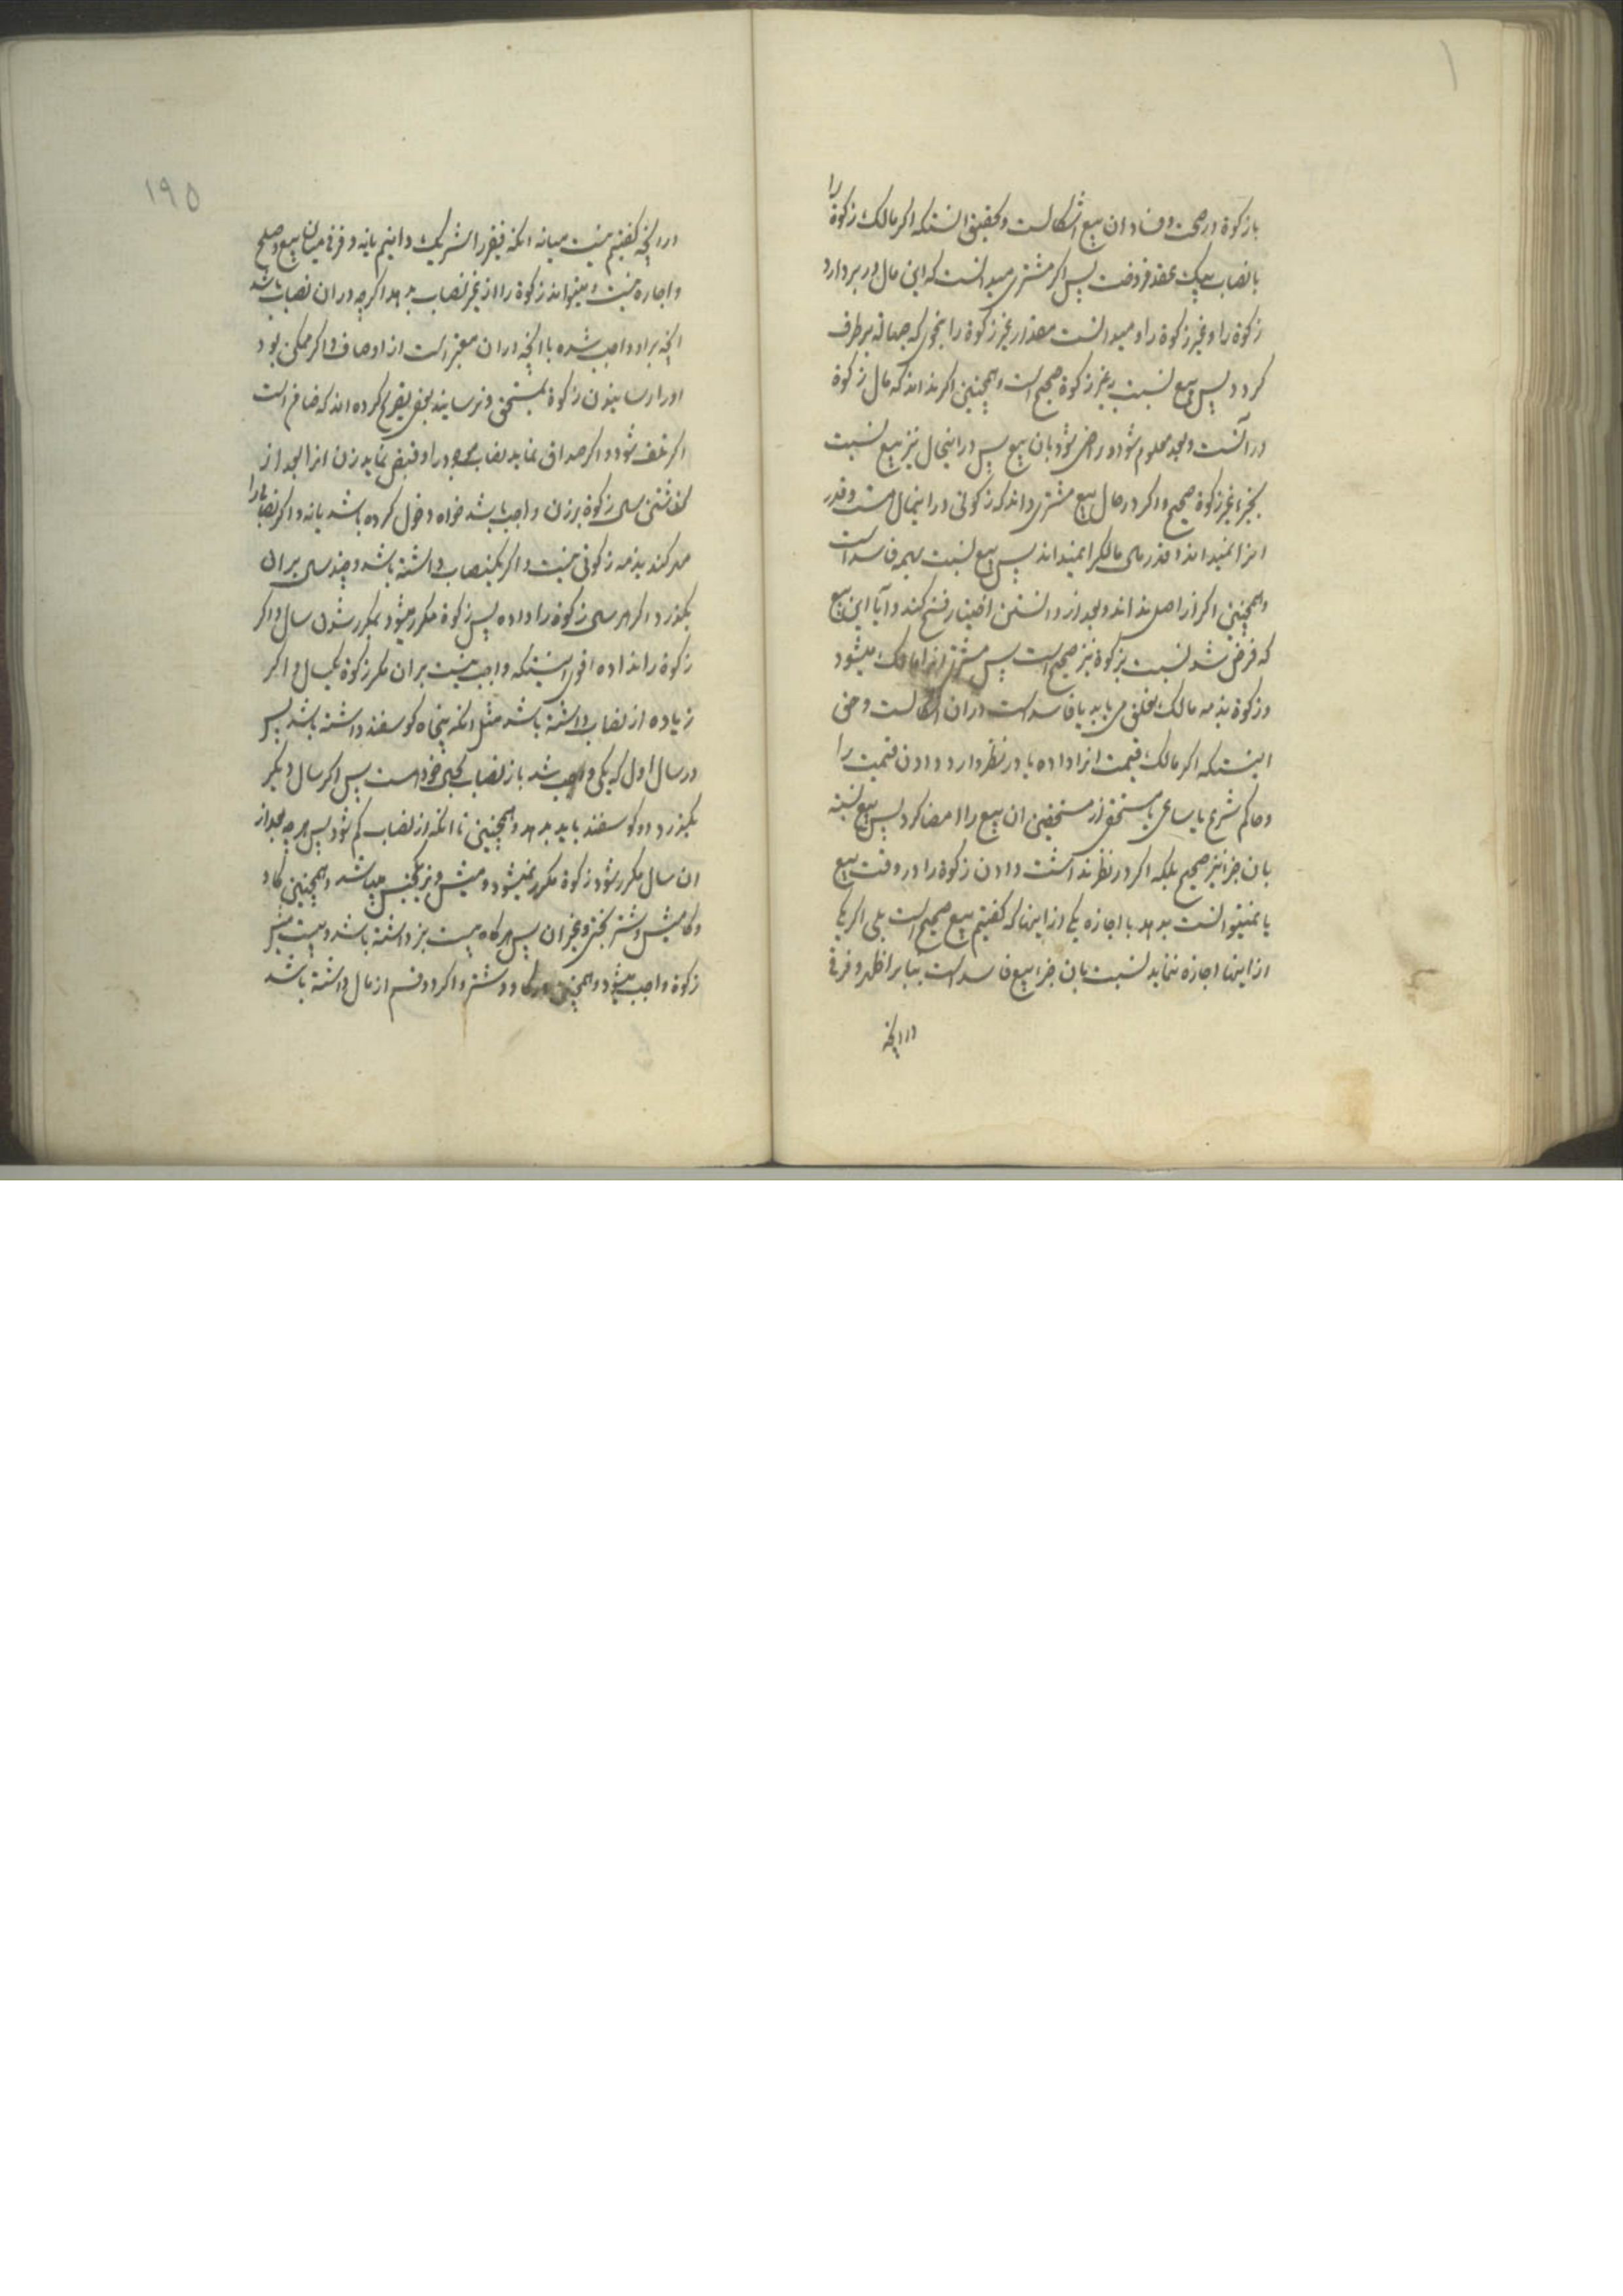 را
با زکوة در صحت و فساد ان بیع اشکالست و تحقیق انستکه اکر مالک زکوة
با نصاب بیک عقد فروخت پس اکر مشتری میدانست که این مال در بر دارد
زکوة را و غیر زکوة را و میدانست مقدار غیر زکوة را بنحوی که جهالة برطرف
کردد پس بیع نسبت بغیر زکوة صحیح است و همچنین اکر نداند که مال زکوة
در آنست و بعد معلوم شود و راضی شود بان بیع پس در اینحال نیز بیع نسبت
بجزء غیر زکوة صحیح و اکر در حال بیع مشتری داند که زکوتی در اینمال هست و قدر
انرا نمیداند و قدر مال مالکرا نمیداند پس بیع نسبت بهمه فاسد است
و همچنین اکر از اصل نداند و بعد از دانستن اختیار فسخ کند و آیا این بیع
که فرض شد نسبت بزکوة نیز صحیح است پس مشتری انرا مالک میشود
و زکوة بذمه مالک تعلق می یابد یا فاسد است در ان اشکالست و حق
اینستکه اکر مالک قیمت انرا داده یا در نظر دارد دادن قیمت را
و حاکم شرع یا ساعی یا مستحق از مستحقین ان بیع را امضا کرد پس بیع نسبة
بان جزء نیز صحیح بلکه اکر در نظر نداشت دادن زکوة را در وقت بیع
یا نمیتوانست بدهد با اجازه یکی از اینها که کفتیم بیع صحیح است بلی اکر یکی
از اینها اجازه ننماید نسبت بان جزء بیع فاسد است بنابر اظهر و فرقی
در انچه
۱۹۵
در انچه کفتیم نیست میانه انکه فقیر را شریک دانیم یا نه و فرقی میان بیع و صلح
و اجاره نیست و میتواند زکوة را از غیر نصاب بدهد اکر چه در ان نصاب باشد
انچه بر او واجب شده با انچه در ان معتبر است از اوصاف و اکر ممکن بود
او را رسانیدن زکوة بمستحق و نرسانید بعضی تصریح کرده اند که ضامن است
اکر تلف شود و اکر صداق نماید نصاب موجود را و قبض نماید زن انرا بعد از
کذشتن سال زکوة بر زن واجب باشد خواه دخول کرده باشد یا نه و اکر نصاب را
مهر کند بذمه زکوتی نیست و اکر یکنصاب داشته باشد و چند سال بر ان
بکذرد اکر هر سال زکوة را داده پس زکوة مکرر میشود بمکرر شدن سال و اکر
زکوة را نداده اقوی اینستکه واجب نیست بر ان مکر زکوة یکسال و اکر
زیاده از نصاب داشته باشد مثل انکه پنجاه کوسفند داشته باشد پس
در سال اول که یکی واجب شد باز نصاب بجای خود است پس اکر سال دیکر
بکذرد دو کوسفند باید بدهد و همچنین تا انکه از نصاب کم شود پس هر چه بعد از
ان سال مکرر شود زکوة مکرر نمیشود و میش و بز یکجنس میباشد و همچنین کاو
و کامیش و شتر بختی و غیر ان پس هر کاه بیست بز داشته باشد و بیست میش
زکوة واجب میشود و همچنین در کاو و شتر و اکر دو قسم از مال داشته باشد